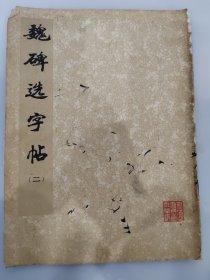 魏碑选字帖
(二)